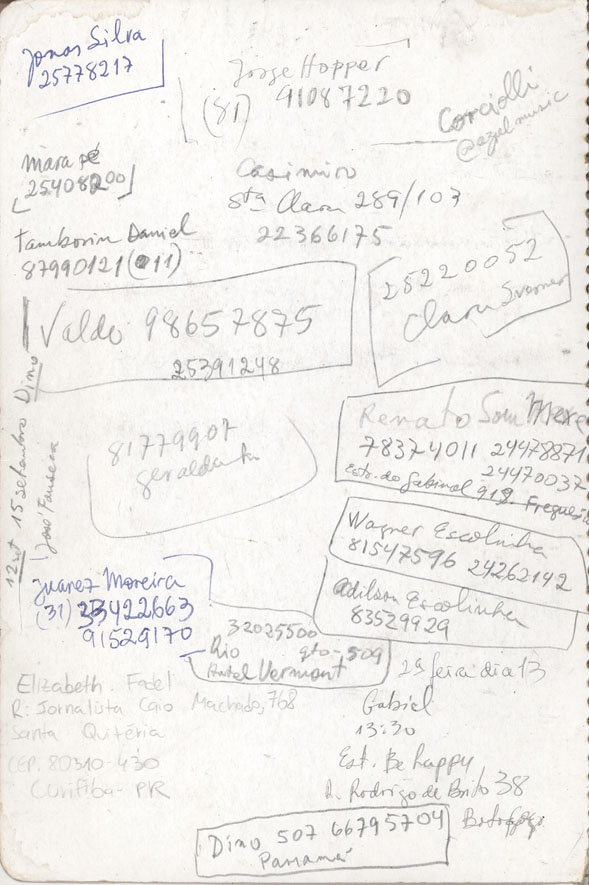 Jonas Silva
25778217
Jorge Hopper
(81) 91087220
Corciolli
@azulmusic
mara pé
25408200
Casimiro
Sta Clara 289/103
22366175
Tamborim Daniel
87990121 (011)
28220052
Clara
Valdo 98657875
25391248
12 set 15 setembro Dino
José Fonseca
81779907
Renato Som Mexe
78374011 24478871
24470037
Estr. do Gabinal 912. Freguesia
Wagner Escolinha
81547596 24262142
Adilson Escolinha
83529929
Juarez Moreira
(31) 33422663
91529170
32025500
Rio qto-509
Hotel Vermont
2ª feira dia 13
Gabriel
13:30
Est. Be happy
R. Rodrigo de Brito 38
Botafogo
Elizabeth Fadel
R: Jornalista Caio Machado, 768
Santa Quitéria
CEP. 80310-430
Curitiba - PR
Dino 507 66795704
Panamá